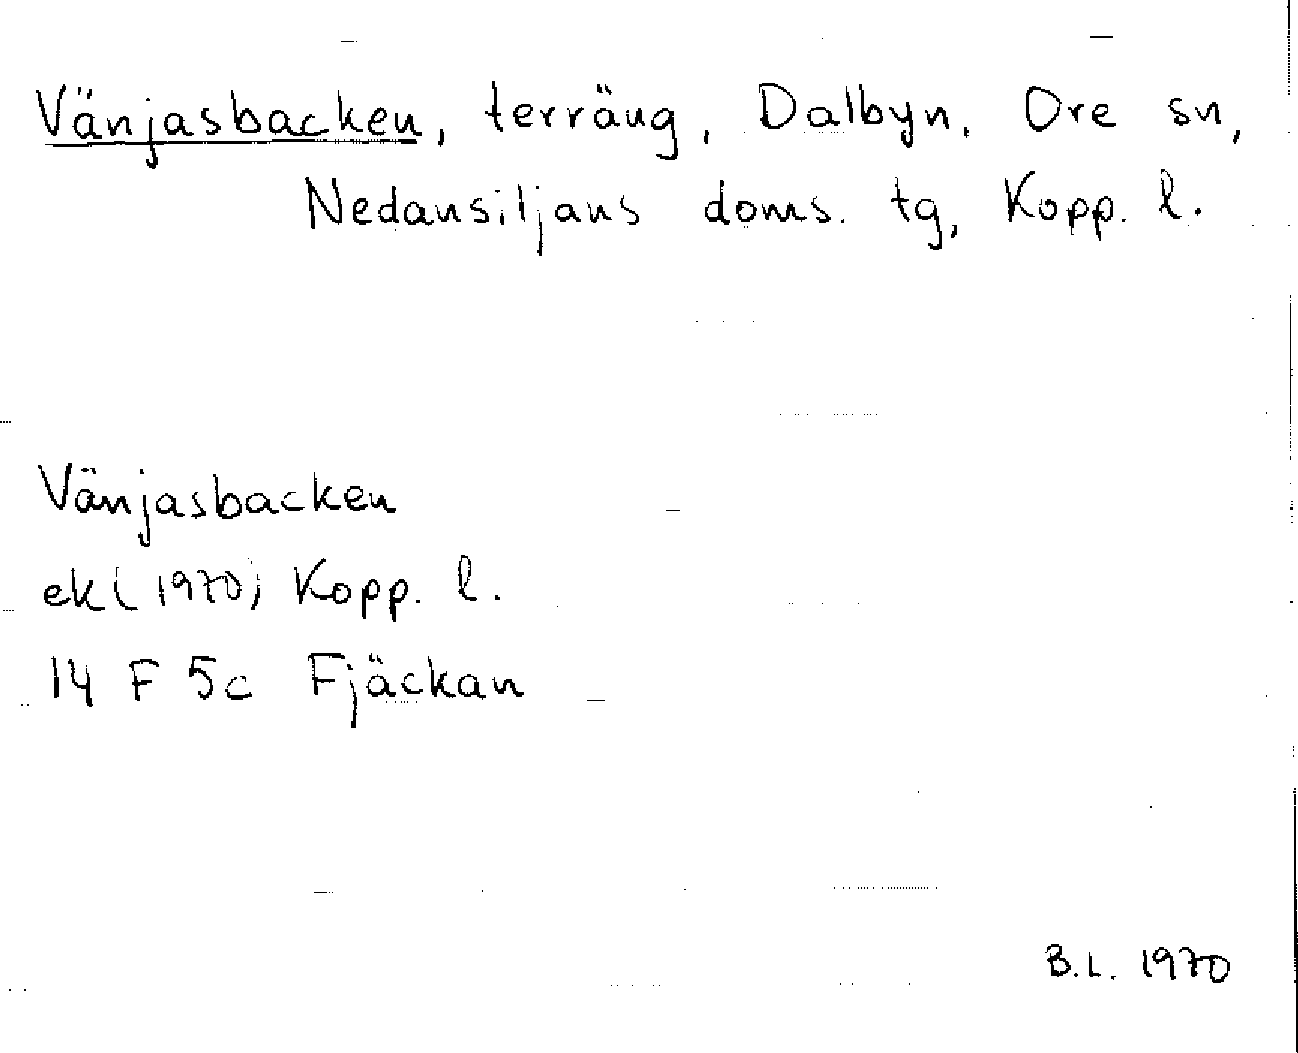 Vänjasbacken, terräng, Dalbyn, Ore sn,
Nedansiljans doms. tg, Kopp. l.
Vänjasbacken
ek (1970) Kopp. l.
14 F 5c Fjäckan
B.L. 1970